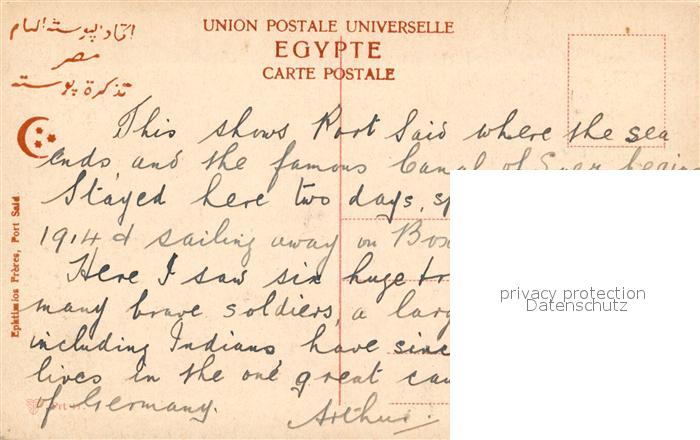 UNION POSTALE UNIVERSELLE
EGYPTE
CARTE POSTALE
اتحاد البوسته العام
مصر
تذكرة بوسته
This shows Port Said where the sea
ends, and the famous Canal of Suez begins
Stayed here two days, sp
1914 & sailing away on Box
Here I saw six huge tr
many brave soldiers, a larg
including Indians, have since
lives in the one great cau
of Germany. Arthur.
Ephtimios Frères, Port Said
privacy protection
Datenschutz